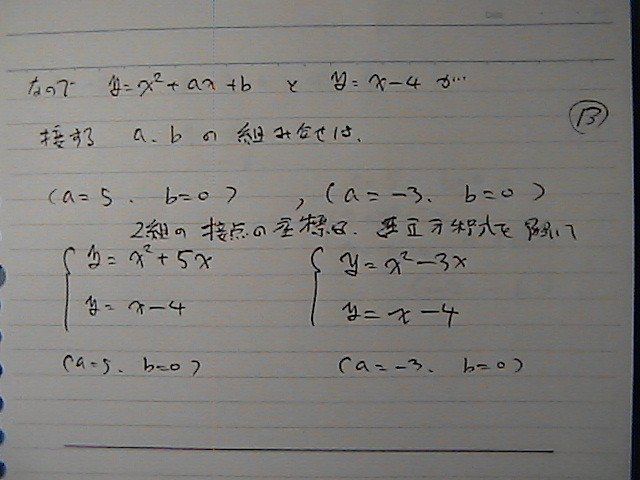 なので y=x²+ax+b と y=x-4 が…
接する a、b の 組み合せは、
B
(a=5、 b=0) , (a=-3、 b=0)
2組の接点の座標は、連立方程式を解いて
y=x²+5x y=x²-3x
y=x-4 y=x-4
(a=5、 b=0) (a=-3、 b=0)